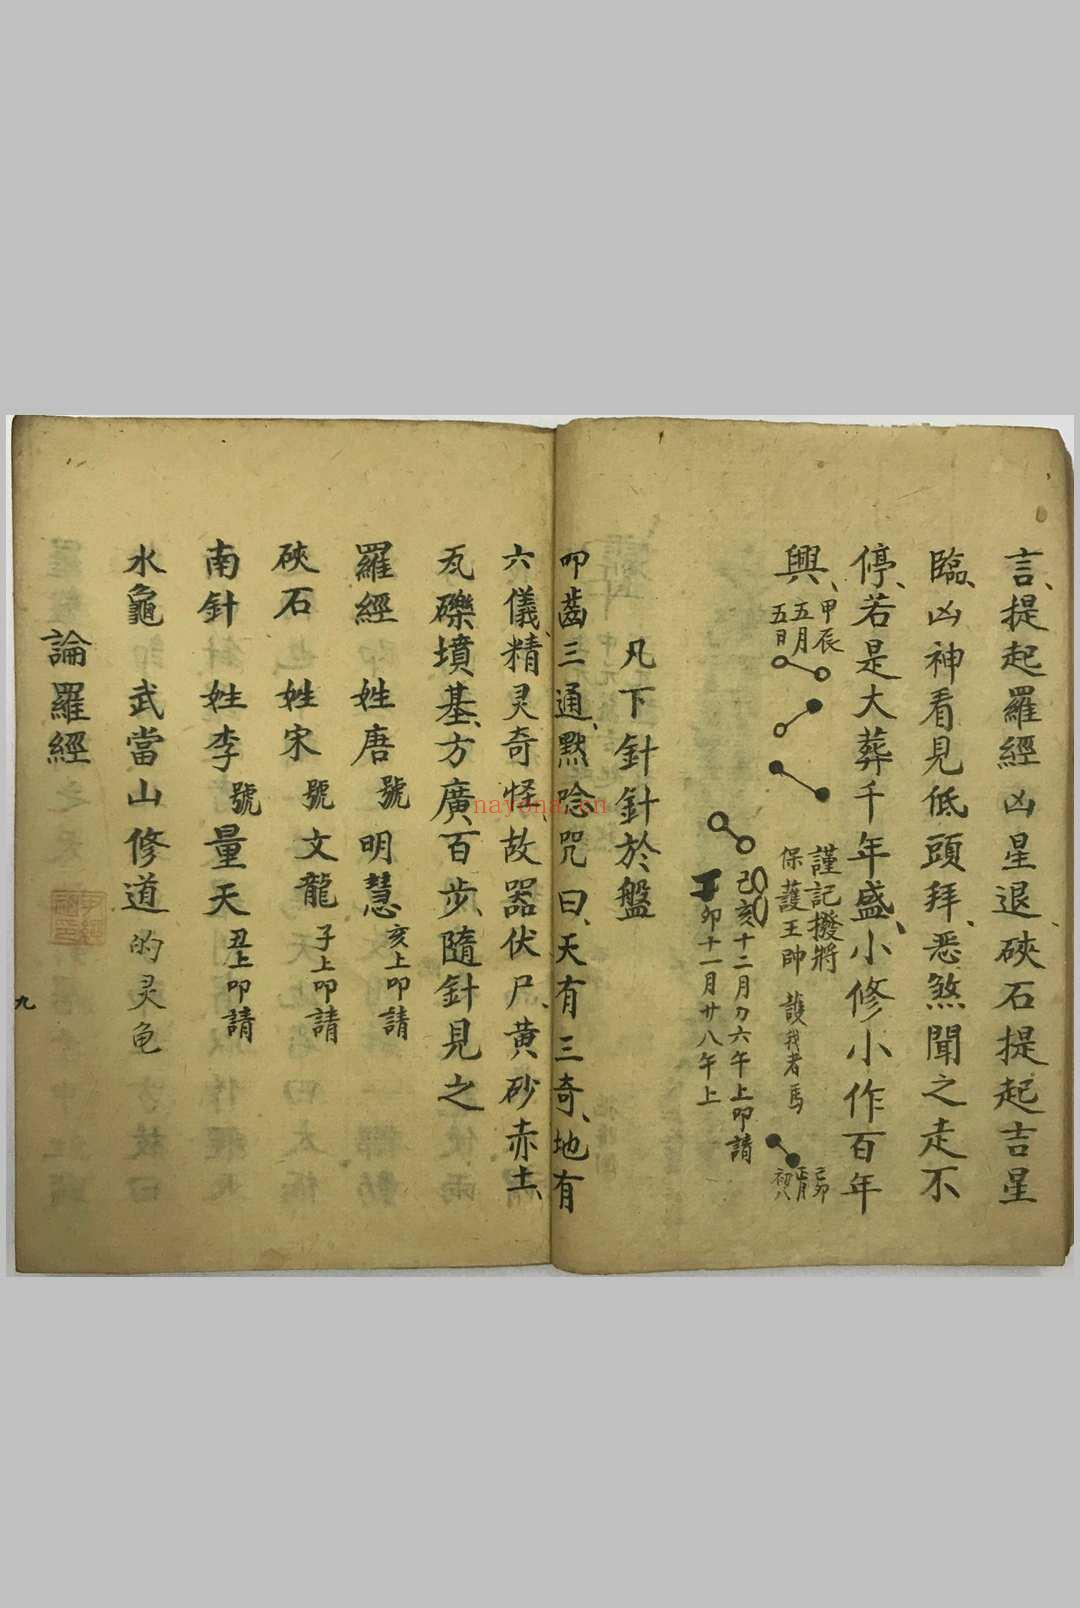 言、提起羅經凶星退、硤石提起吉星
臨、凶神看見低頭拜、恶煞聞之走不
停、若是大葬千年盛、小修小作百年
興、
甲辰
五月
五日
謹記撥將
保護王帥
護我者馬
己卯
正月
初八
己亥十二月
六午上叩請
卯十一月廿八午上
凡下針針於盤
叩齒三通、默唸咒曰、天有三奇、地有
六儀、精灵奇怪、故器伏尸、黄砂赤土、
瓦礫墳基、方廣百步、隨針見之
羅經 姓唐 號明慧 亥上叩請
硤石 姓宋 號文龍 子上叩請
南針 姓李 號量天 丑上叩請
水龜 武當山修道的灵龟
論羅經
九
nayona.cn